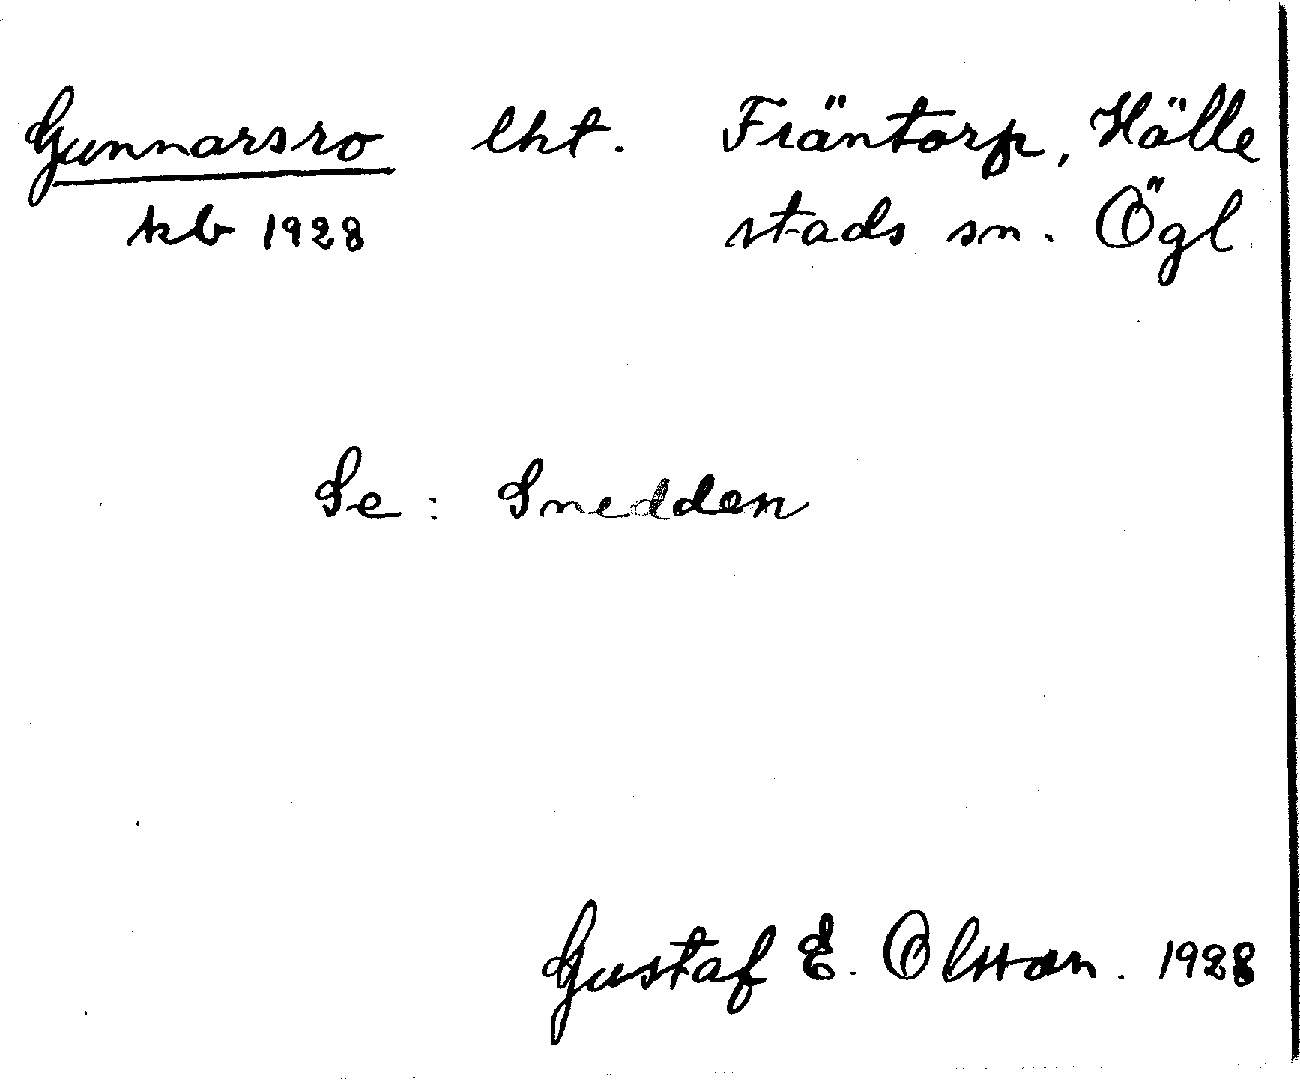 Gunnarsro lht. Fräntorp, Hälle
kb 1928 stads sn. Ögl.
Se: Snedden
Gustaf E. Olsson. 1928